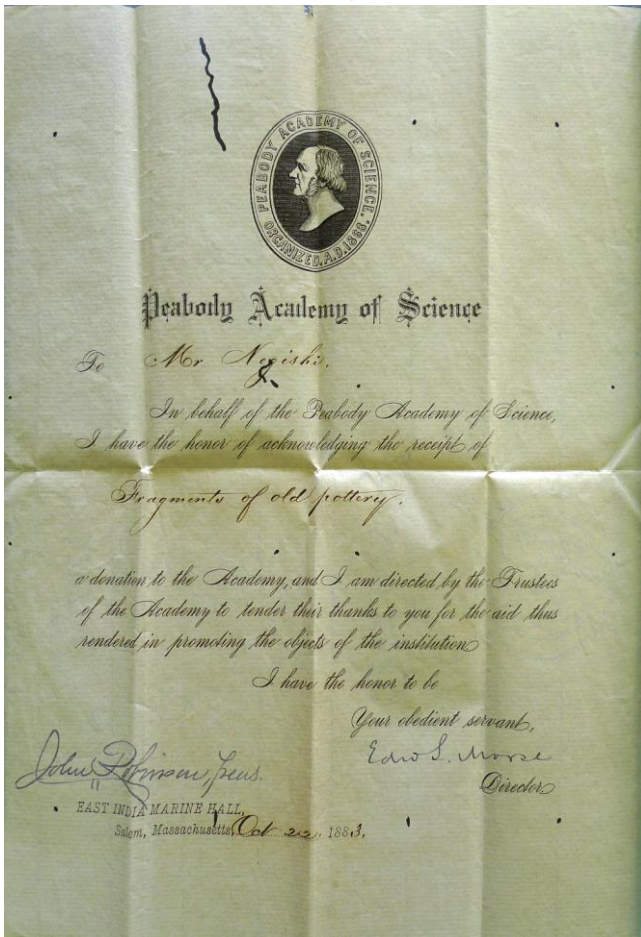 PEABODY ACADEMY OF SCIENCE.
ORGANIZED A.D. 1868.
Peabody Academy of Science
To Mr Negishi,
In behalf of the Peabody Academy of Science,
I have the honor of acknowledging the receipt of
Fragments of old pottery.
a donation to the Academy, and I am directed by the Trustees
of the Academy to tender their thanks to you for the aid thus
rendered in promoting the objects of the institution
I have the honor to be
Your obedient servant,
Edw S. Morse
Director
John Robinson, Treas.
EAST INDIA MARINE HALL,
Salem, Massachusetts, Oct 22. 1883.